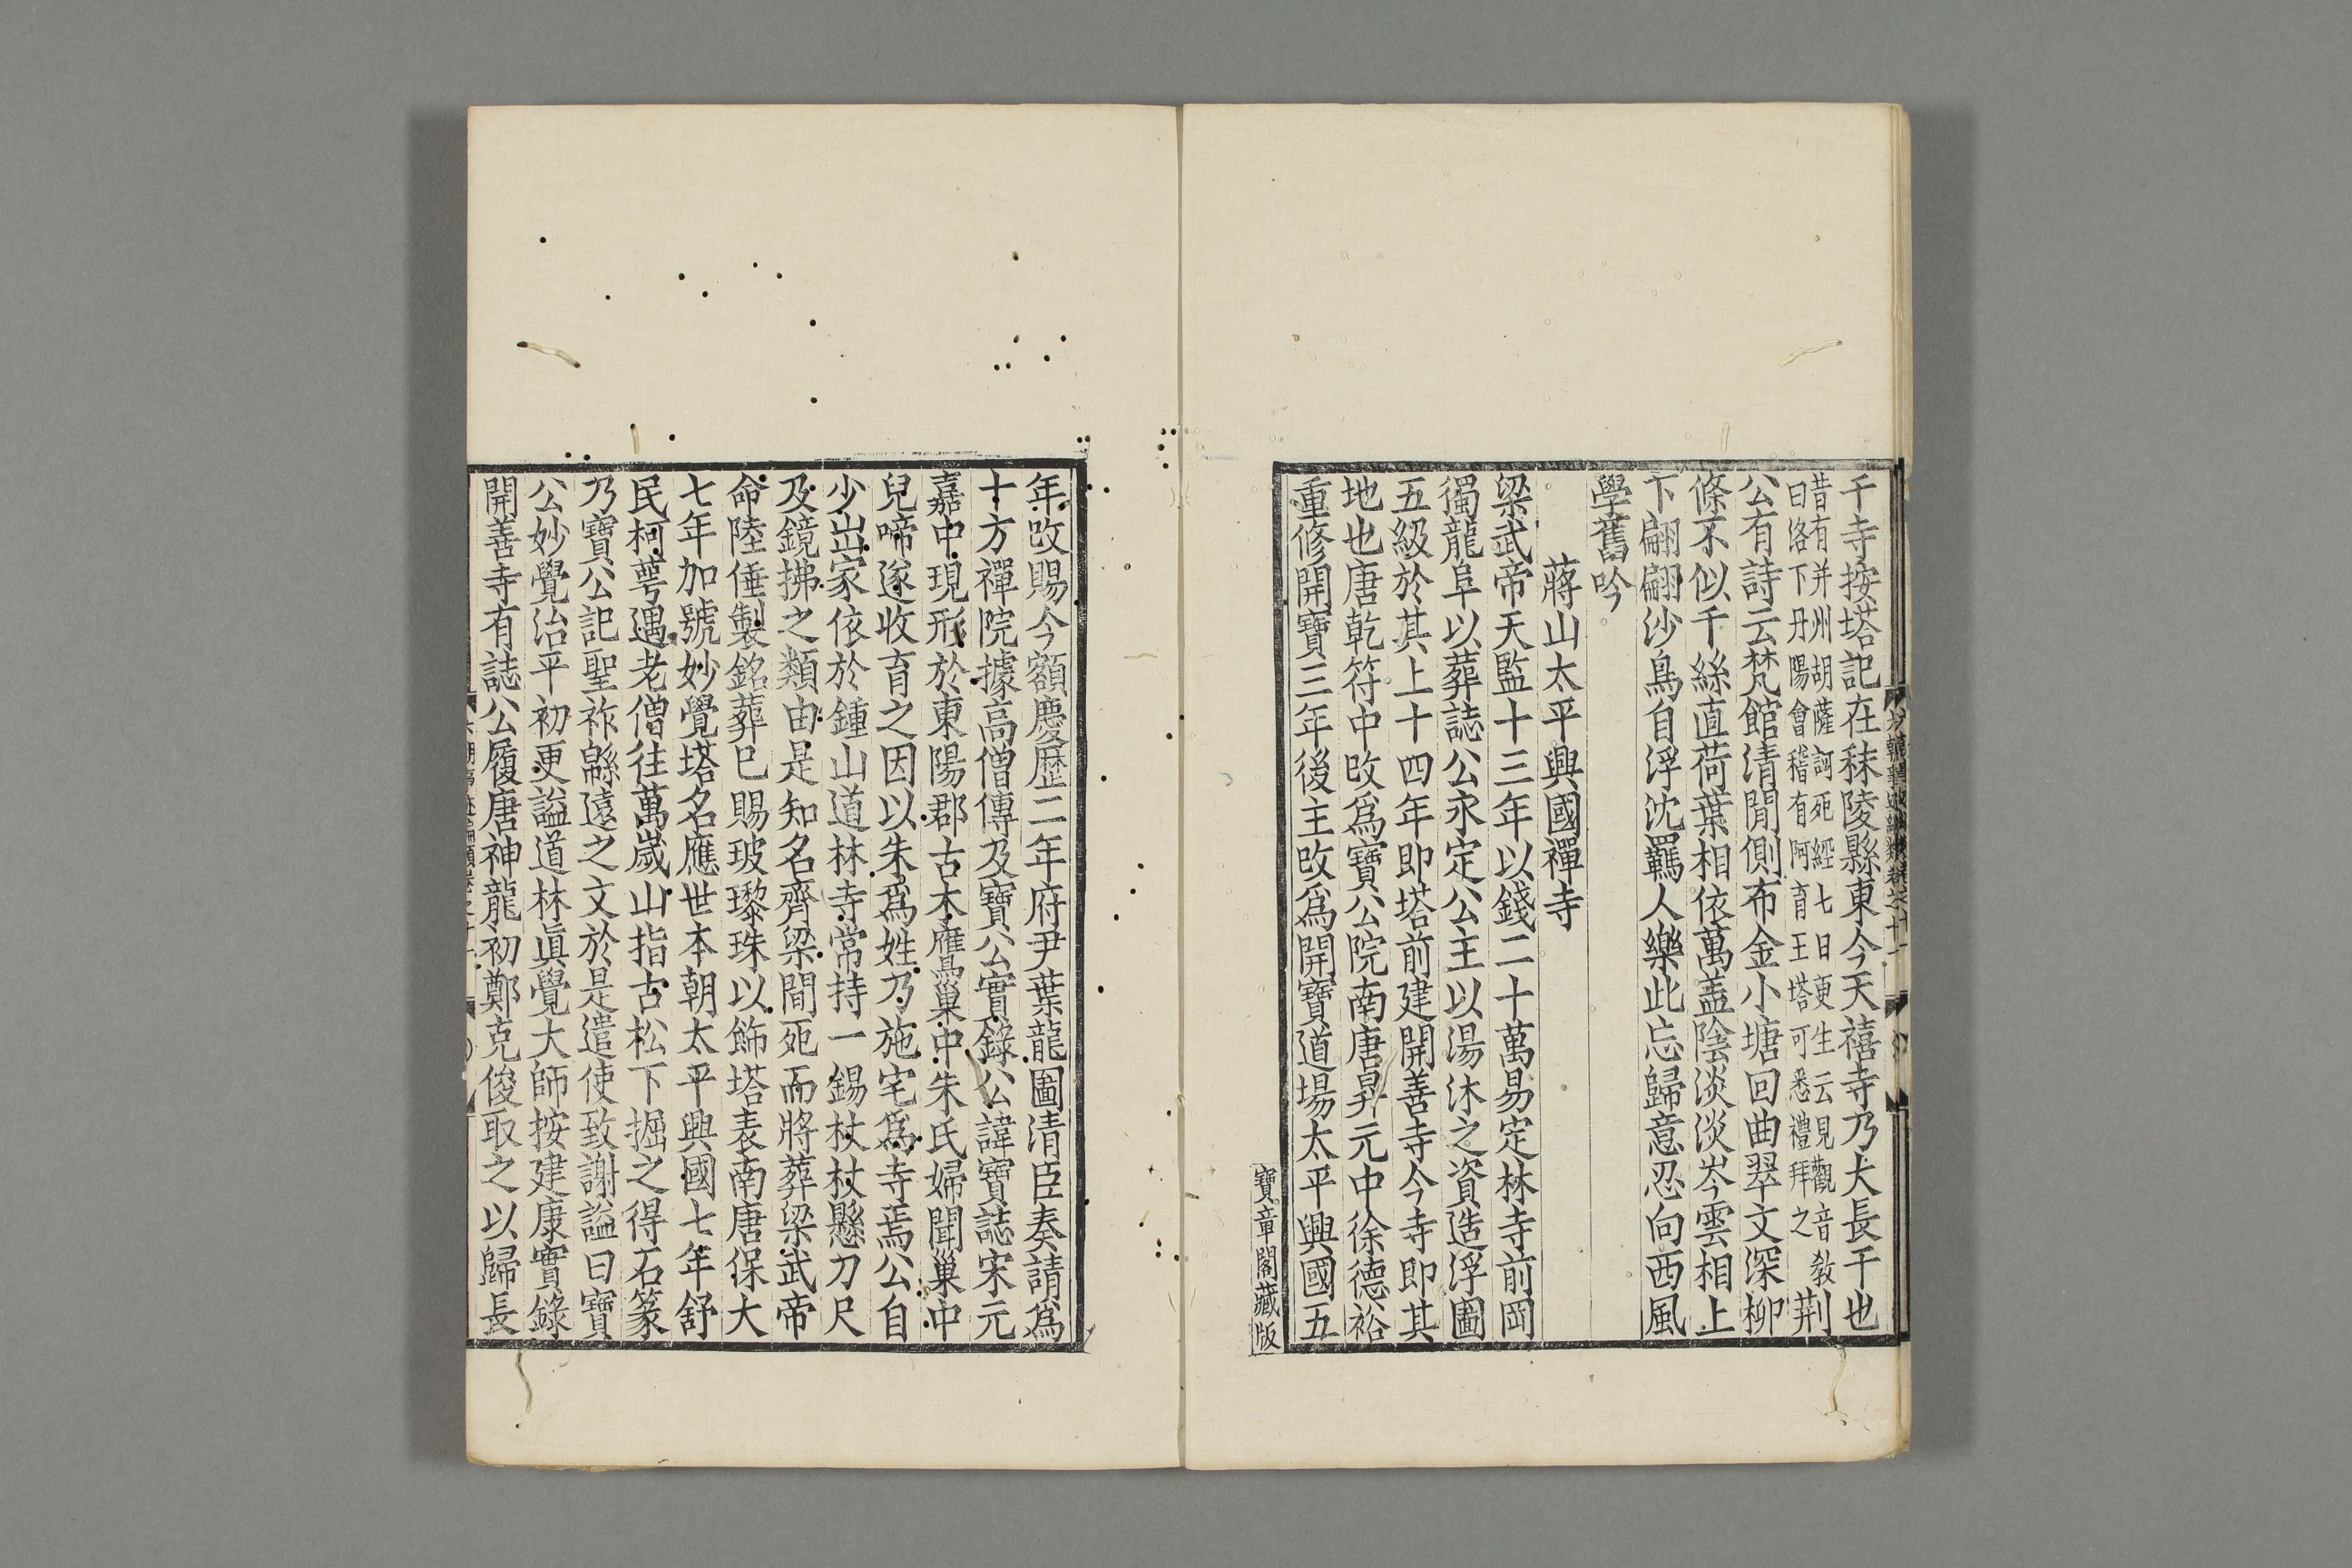 千寺按塔記在秣陵縣東今天禧寺乃大長干也
昔有并州胡薩訶死經七日更生云見觀音教
曰洛下丹陽會稽有阿育王塔可悉禮拜之
荆
公有詩云梵館清閒側布金小塘回曲翠文深柳
條不似千絲直荷葉相依萬盖陰淡淡岑雲相上
下翩翩沙鳥自浮沈羈人樂此忘歸意忍向西風
學舊吟
蔣山太平興國禪寺
梁武帝天監十三年以錢二十萬易定林寺前岡
獨龍阜以葬誌公永定公主以湯沐之資造浮圖
五級於其上十四年即塔前建開善寺今寺即其
地也唐乾符中改爲寶公院南唐昇元中徐德裕
重修開寶三年後主改爲開寶道場太平興國五
寶章閣藏版
年改賜今額慶歷二年府尹葉龍圖清臣奏請爲
十方禪院據高僧傳及寶公實錄公諱寶誌宋元
嘉中現形於東陽郡古木鷹巢中朱氏婦聞巢中
兒啼遂收育之因以朱爲姓乃施宅爲寺焉公自
少出家依於鍾山道林寺常持一錫杖杖懸刀尺
及鏡拂之類由是知名齊梁間死而將葬梁武帝
命陸倕製銘葬已賜玻瓈珠以飾塔表南唐保大
七年加號妙覺塔名應世本朝太平興國七年舒
民柯萼遇老僧往萬嵗山指古松下掘之得石篆
乃寶公記聖祚緜遠之文於是遣使致謝謚曰寶
公妙覺治平初更謚道林眞覺大師按建康實錄
開善寺有誌公履唐神龍初鄭克俊取之以歸長